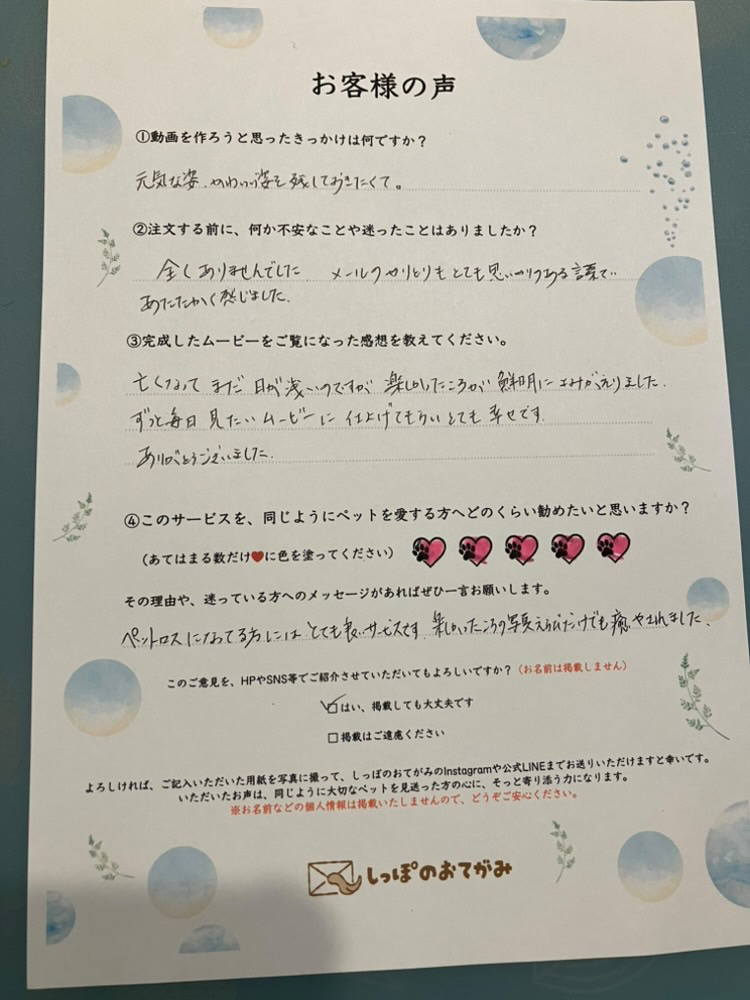 お客様の声
①動画を作ろうと思ったきっかけは何ですか?
元気な姿、かわいい姿を残しておきたくて。
②注文する前に、何か不安なことや迷ったことはありましたか?
全くありませんでした メールのやりとりもとても思いやりのある言葉で
あたたかく感じました.
③完成したムービーをご覧になった感想を教えてください。
亡くなって まだ 日が浅いのですが 楽しかったころが 鮮明によみがえりました.
ずっと毎日 見たい ムービーに 仕上げてもらい とても 幸せです.
ありがとうございました.
④このサービスを、同じようにペットを愛する方へどのくらい勧めたいと思いますか?
(あてはまる数だけ❤に色を塗ってください)
その理由や、迷っている方へのメッセージがあればぜひ一言お願いします。
ペットロスになってる方には とても良いサービスです. 楽しかったころの写真えらびだけでも 癒やされました.
このご意見を、HPやSNS等でご紹介させていただいてもよろしいですか?(お名前は掲載しません)
☑はい、掲載しても大丈夫です
□掲載はご遠慮ください
よろしければ、ご記入いただいた用紙を写真に撮って、しっぽのおてがみのInstagramや公式LINEまでお送りいただけますと幸いです。
いただいたお声は、同じように大切なペットを見送った方の心に、そっと寄り添う力になります。
※お名前などの個人情報は掲載いたしませんので、どうぞご安心ください。
しっぽのおてがみ